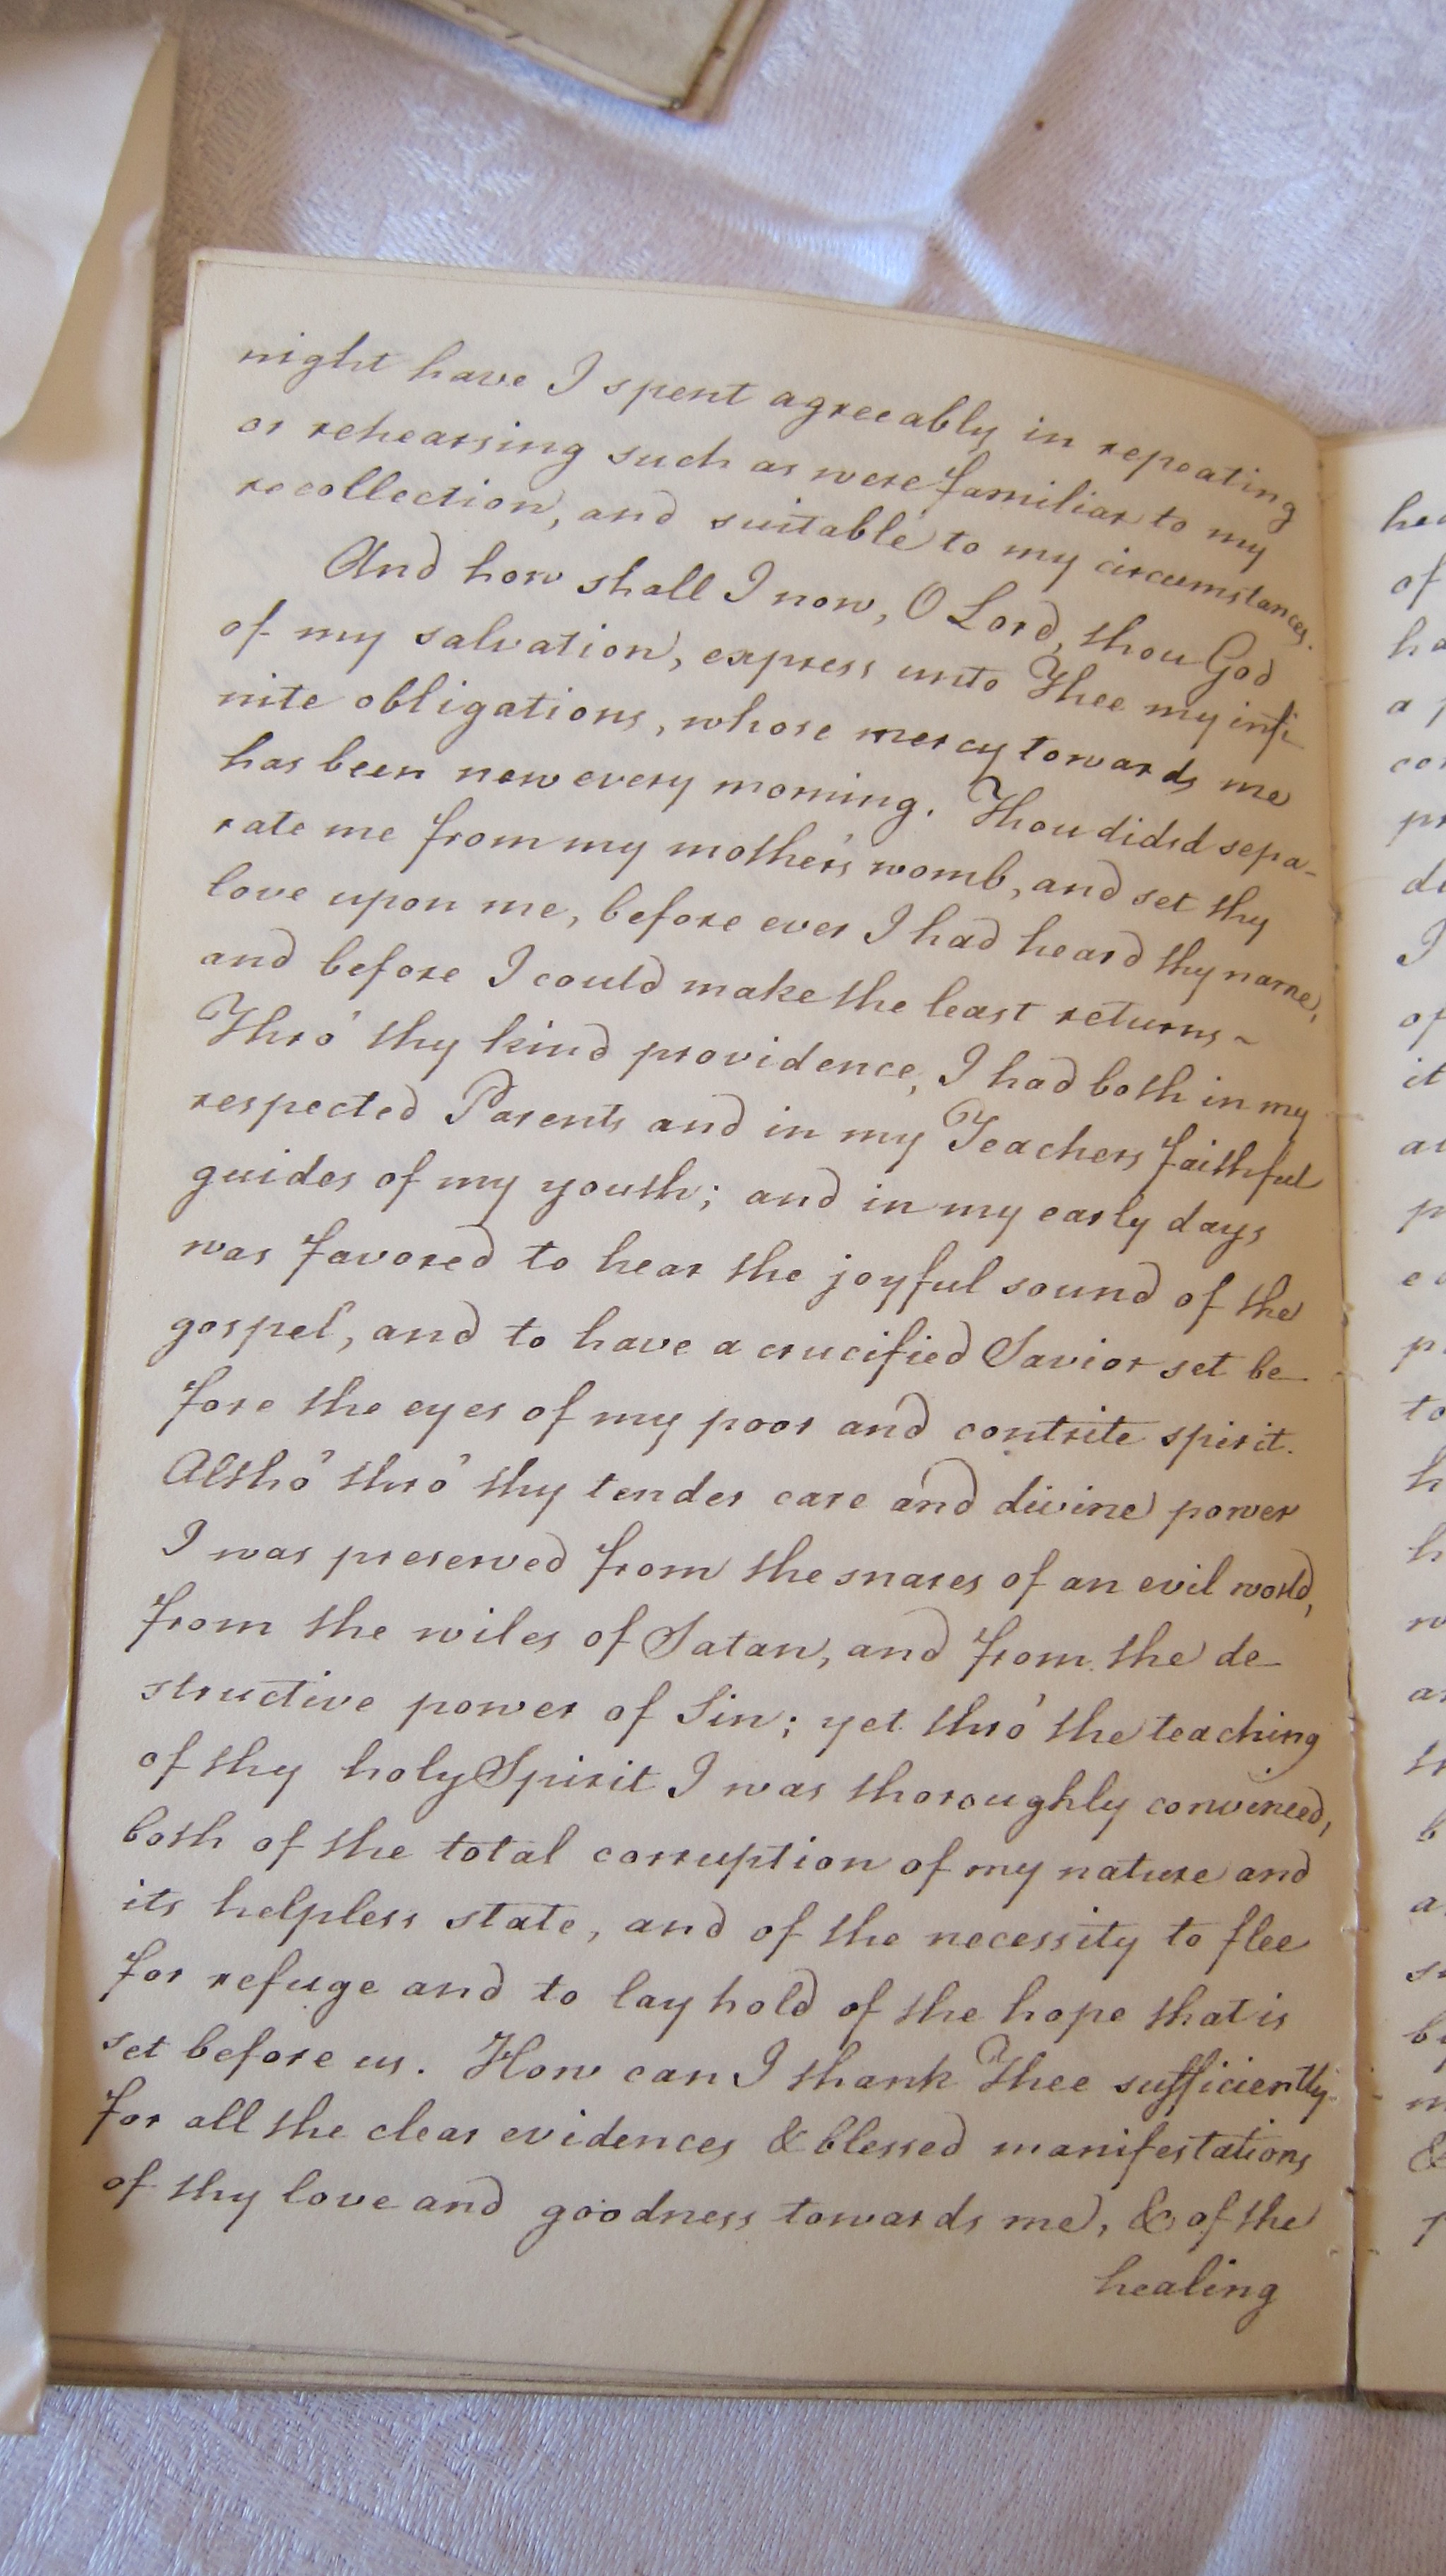 night have I spent agreeably in repeating
or rehearsing such as were familiar to my
recollection, and suitable to my circumstances.
And how shall I now, O Lord, thou God
of my salvation, express unto Thee my infi
nite obligations, whose mercy towards me
has been new every morning. Thou didsd sepa-
rate me from my mother's womb, and set thy
love upon me, before ever I had heard thy name,
and before I could make the least returns ~
Thro' thy kind providence, I had both in my
respected Parents and in my Teachers faithful
guides of my youth; and in my early days
was favored to hear the joyful sound of the
gospel, and to have a crucified Savior set be-
fore the eyes of my poor and contrite spirit.
Altho' thro' thy tender care and divine power
I was preserved from the snares of an evil world,
from the wiles of Satan, and from the de-
structive power of Sin; yet thro' the teaching
of thy holy Spirit I was thoroughly convinced,
both of the total corruption of my nature and
its helpless state, and of the necessity to flee
for refuge and to lay hold of the hope that is
set before us. How can I thank Thee sufficiently
for all the clear evidences & blessed manifestations
of thy love and goodness towards me, & of the
healing
of
it
to
&